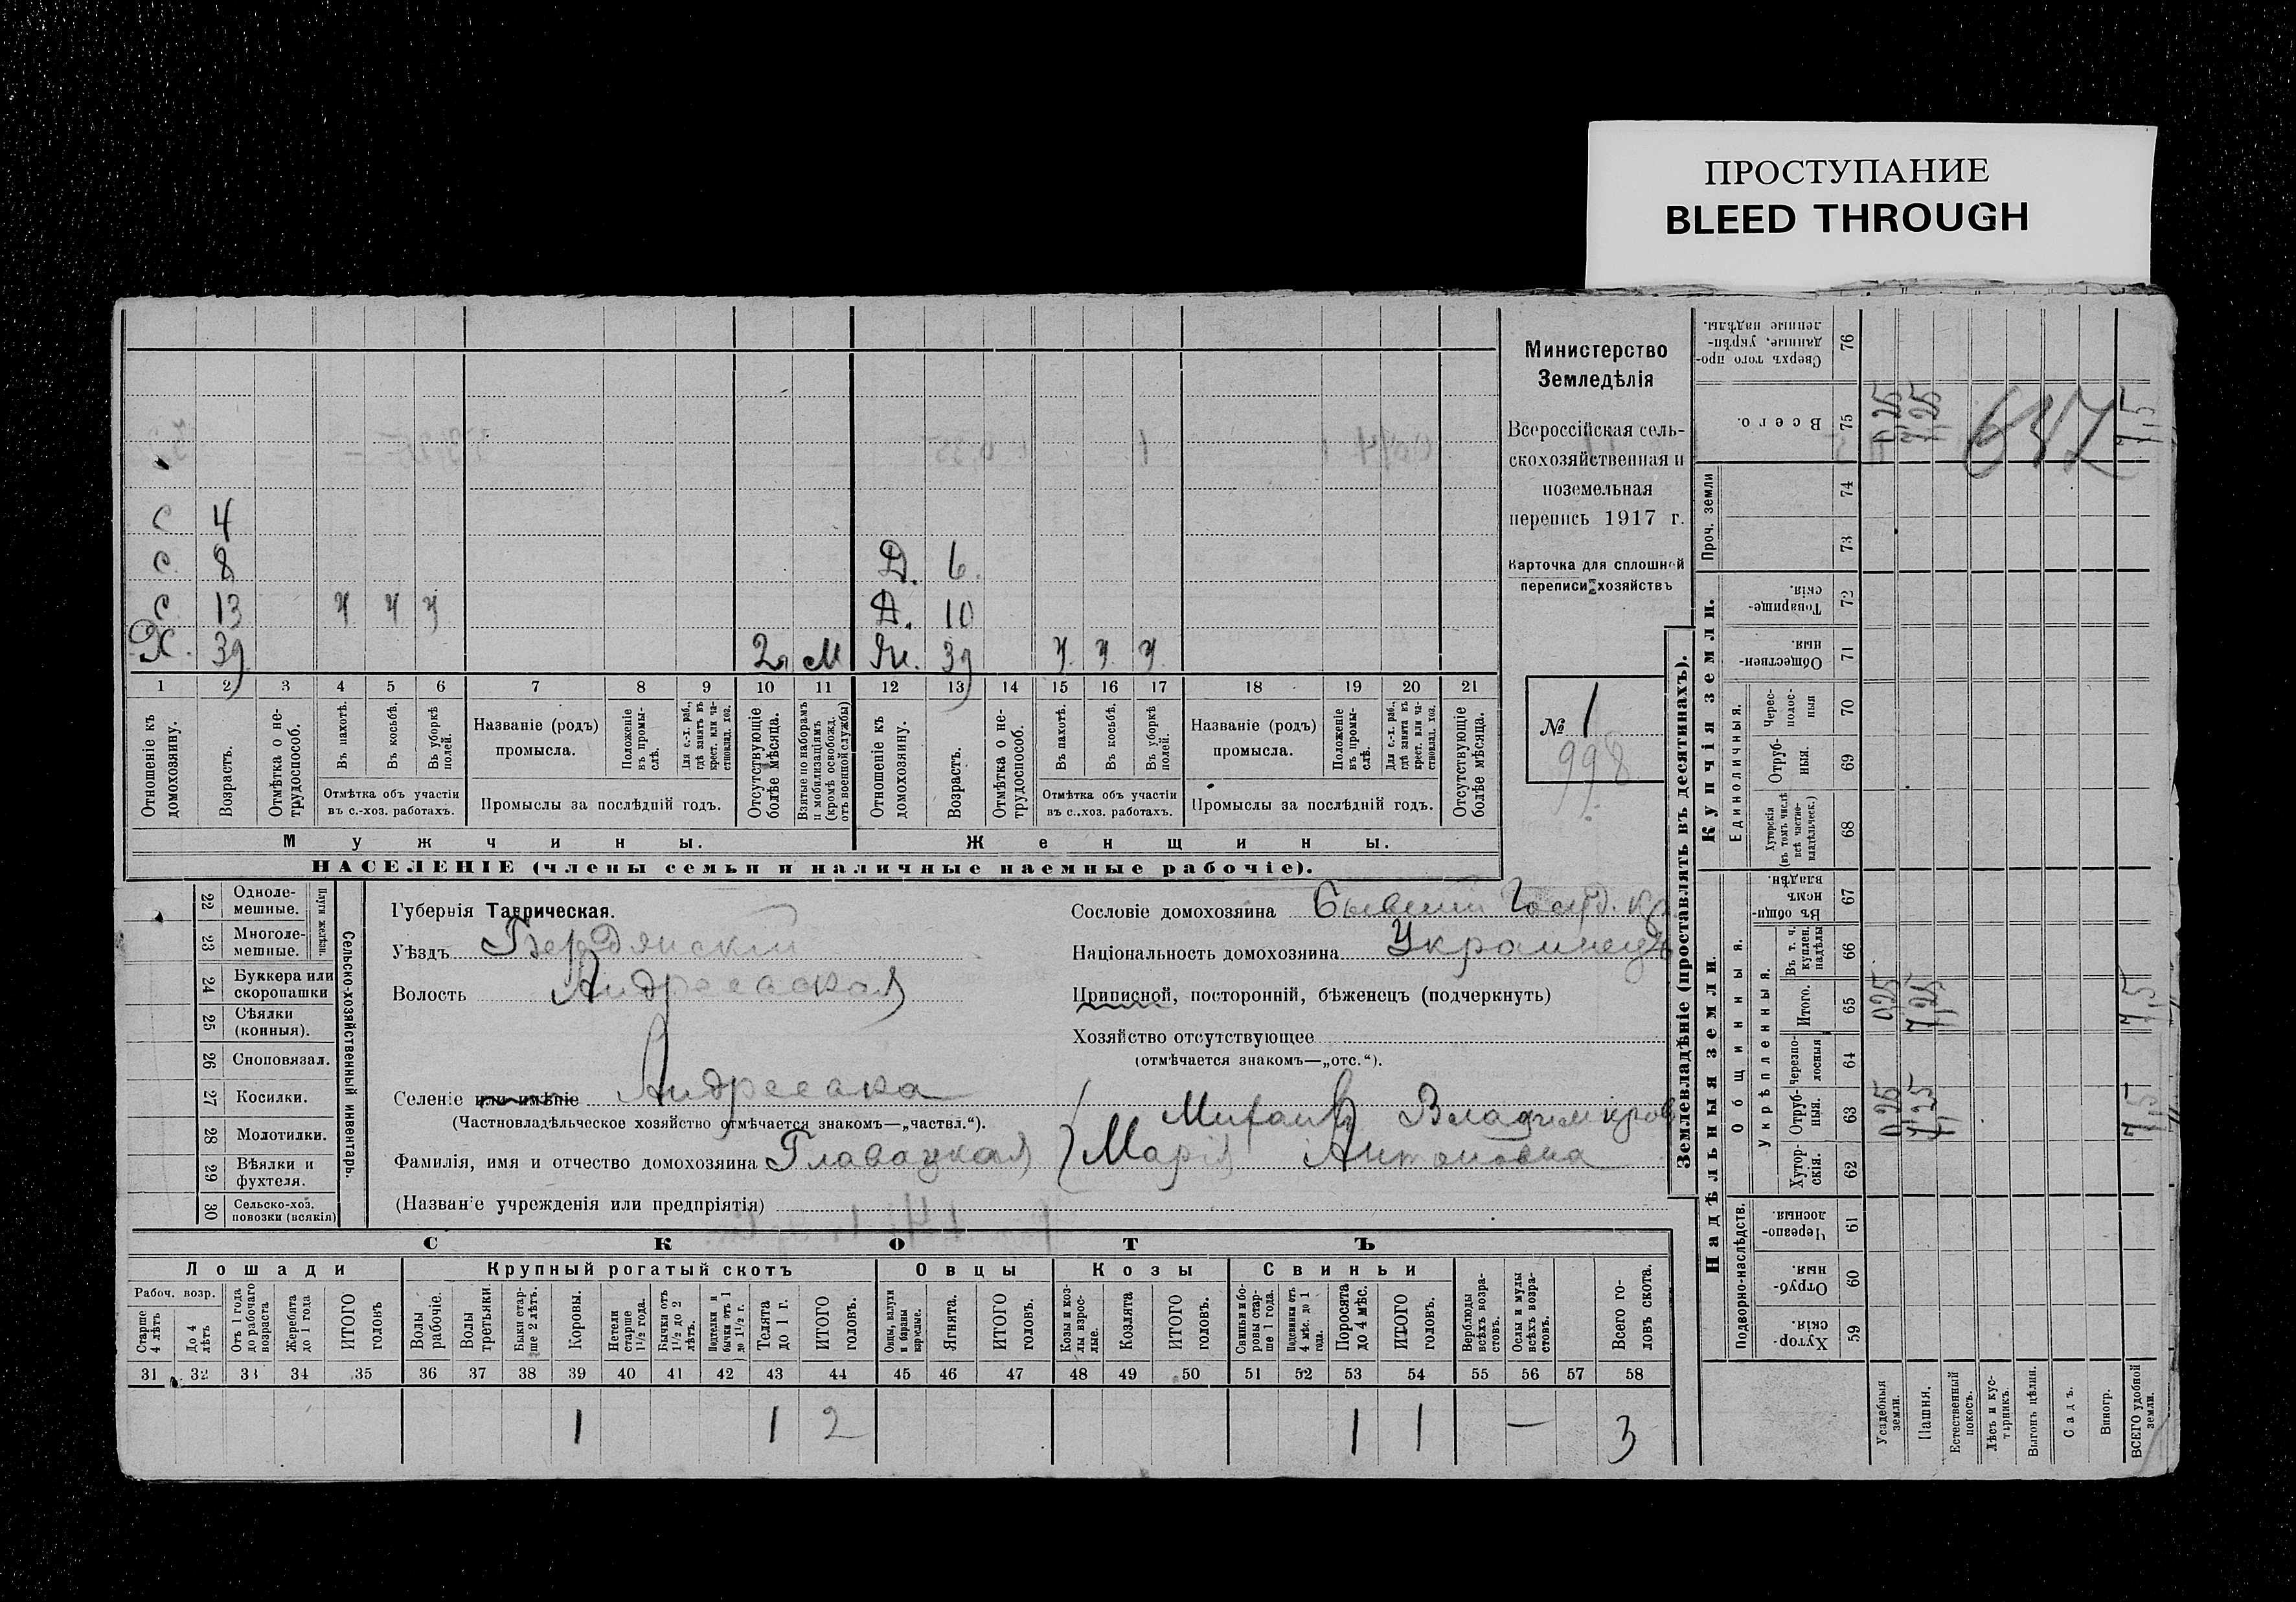 ПРОСТУПАНИЕ
BLEED THROUGH
С 4
С 8 Д. 6.
С. 13 Д. 10
Х. 39 М 39
1 2 3 4 5 6 7 8 9 10 11 12 13 14 15 16 17 18 19 20 21
Отношеніе къ домохозяину.
Возрастъ.
Отмѣтка о нетрудоспособ.
Въ пахотѣ.
Въ косьбѣ.
Въ уборкѣ полей.
Отмѣтка объ участіи
въ с.-хоз. работахъ.
Названіе (родъ)
промысла.
Положеніе въ промыслѣ.
Для с.-х. раб., гдѣ занятъ въ крест. или частновлад. хоз.
Промыслы за послѣдній годъ.
Отсутствующіе болѣе мѣсяца.
Взятые по наборамъ и мобилизаціямъ (кромѣ освобожд. отъ военной службы)
Отношеніе къ домохозяину.
Возрастъ.
Отмѣтка о нетрудоспособ.
Въ пахотѣ.
Въ косьбѣ.
Въ уборкѣ полей.
Отмѣтка объ участіи
въ с..хоз. работахъ.
Названіе (родъ)
промысла.
Положеніе въ промыслѣ.
Для с.-х. раб., гдѣ занята въ крест. или частновлад. хоз.
Промыслы за послѣдній годъ.
Отсутствующіе болѣе мѣсяца.
Мужчины.
Женщины.
НАСЕЛЕНІЕ (члены семьи и наличные наемные рабочіе).
Министерство
Земледѣлія
Всероссійская сель-
скохозяйственная и
поземельная
перепись 1917 г.
Карточка для сплошной
переписи хозяйствъ
№ 1
998
22 Одноле-
мешные.
23 Многоле-
мешные.
Плуги желѣзн.
24 Буккера или
скоропашки
25 Сѣялки
(конныя).
26 Сноповязал.
27 Косилки.
28 Молотилки.
29 Вѣялки и
фухтеля.
30 Сельско-хоз.
повозки (всякія)
Сельско-хозяйственный инвентарь.
Губернія Таврическая.
Уѣздъ Бердянскій
Волость Андреевская
Селеніе или имѣніе Андреевка
(Частновладѣльческое хозяйство отмѣчается знакомъ—„частвл.“).
Фамилія, имя и отчество домохозяина Главацкая Марія Антоновна
Михаилъ Владимиров
(Названіе учрежденія или предпріятія)
Сословіе домохозяина Бывшій Госуд. кр.
Національность домохозяина Украинецъ
Приписной, посторонній, бѣженецъ (подчеркнуть)
Хозяйство отсутствующее
(отмѣчается знакомъ—„отс.“).
СКОТЪ
Лошади
Крупный рогатый скотъ
Овцы
Козы
Свиньи
Рабоч. возр.
Старше 4 лѣтъ
До 4 лѣтъ
Отъ 1 года до рабочаго возраста
Жеребята до 1 года
ИТОГО головъ
Волы рабочіе.
Волы третьяки.
Быки старше 2 лѣтъ.
Коровы.
Нетели старше 1½ года.
Бычки отъ 1½ до 2 лѣтъ.
Подтелки и бычки отъ 1 до 1½ г.
Телята до 1 г.
ИТОГО головъ.
Овцы, валухи и бараны взрослые.
Ягнята.
ИТОГО головъ.
Козы и козлы взрослые.
Козлята
ИТОГО головъ.
Свиньи и боровы старше 1 года.
Подсвинки отъ 4 мѣс. до 1 года.
Поросята до 4 мѣс.
ИТОГО головъ.
Верблюды всѣхъ возрастовъ.
Ослы и мулы всѣхъ возрастовъ.
Всего головъ скота.
31 32 33 34 35 36 37 38 39 40 41 42 43 44 45 46 47 48 49 50 51 52 53 54 55 56 57 58
1 1 2 1 1 — 3
Землевладѣніе (проставлять въ десятинахъ).
Надѣльныя земли
Купчія земли.
Проч. земли
Подворно-наслѣдств.
Общинныя.
Укрѣпленныя.
Единоличныя.
Хуторскія. 59
Отрубныя. 60
Черезполосныя. 61
Хуторскія. 62
Отрубныя. 63
Черезполосныя 64
Итого. 65
Въ т. ч. куплен. надѣлы 66
Въ общинномъ владѣн. 67
Хуторскія (въ томъ числѣ всѣ частновладѣльческ.) 68
Отрубныя. 69
Чересполосныя 70
Общественныя. 71
Товарищескія. 72
73
74
Всего. 75
Сверхъ того проданные, укрѣпленные надѣлы. 76
Усадебныя земли. 0,25 0,25 0,25
Пашня. 7,25 7,25 7,25
Естественный покосъ.
Лѣсъ и кустарникъ.
Выгонъ цѣлин.
Садъ.
Виногр.
ВСЕГО удобной земли. 7,5 7,5 7,5
647